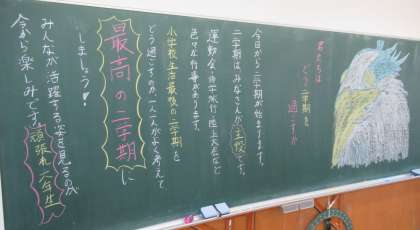 君たちは
どう二学期を
過ごすか
今日から二学期が始まります。
二学期はみなさんが主役です。
運動会・修学旅行・陸上大会など
色々な行事があります。
小学校生活最後の二学期を
どう過ごすのか、一人一人がよく考えて
最高の二学期に
しましょう!
みんなが活躍する姿を見るのが
今から楽しみです。
頑張れ六年生